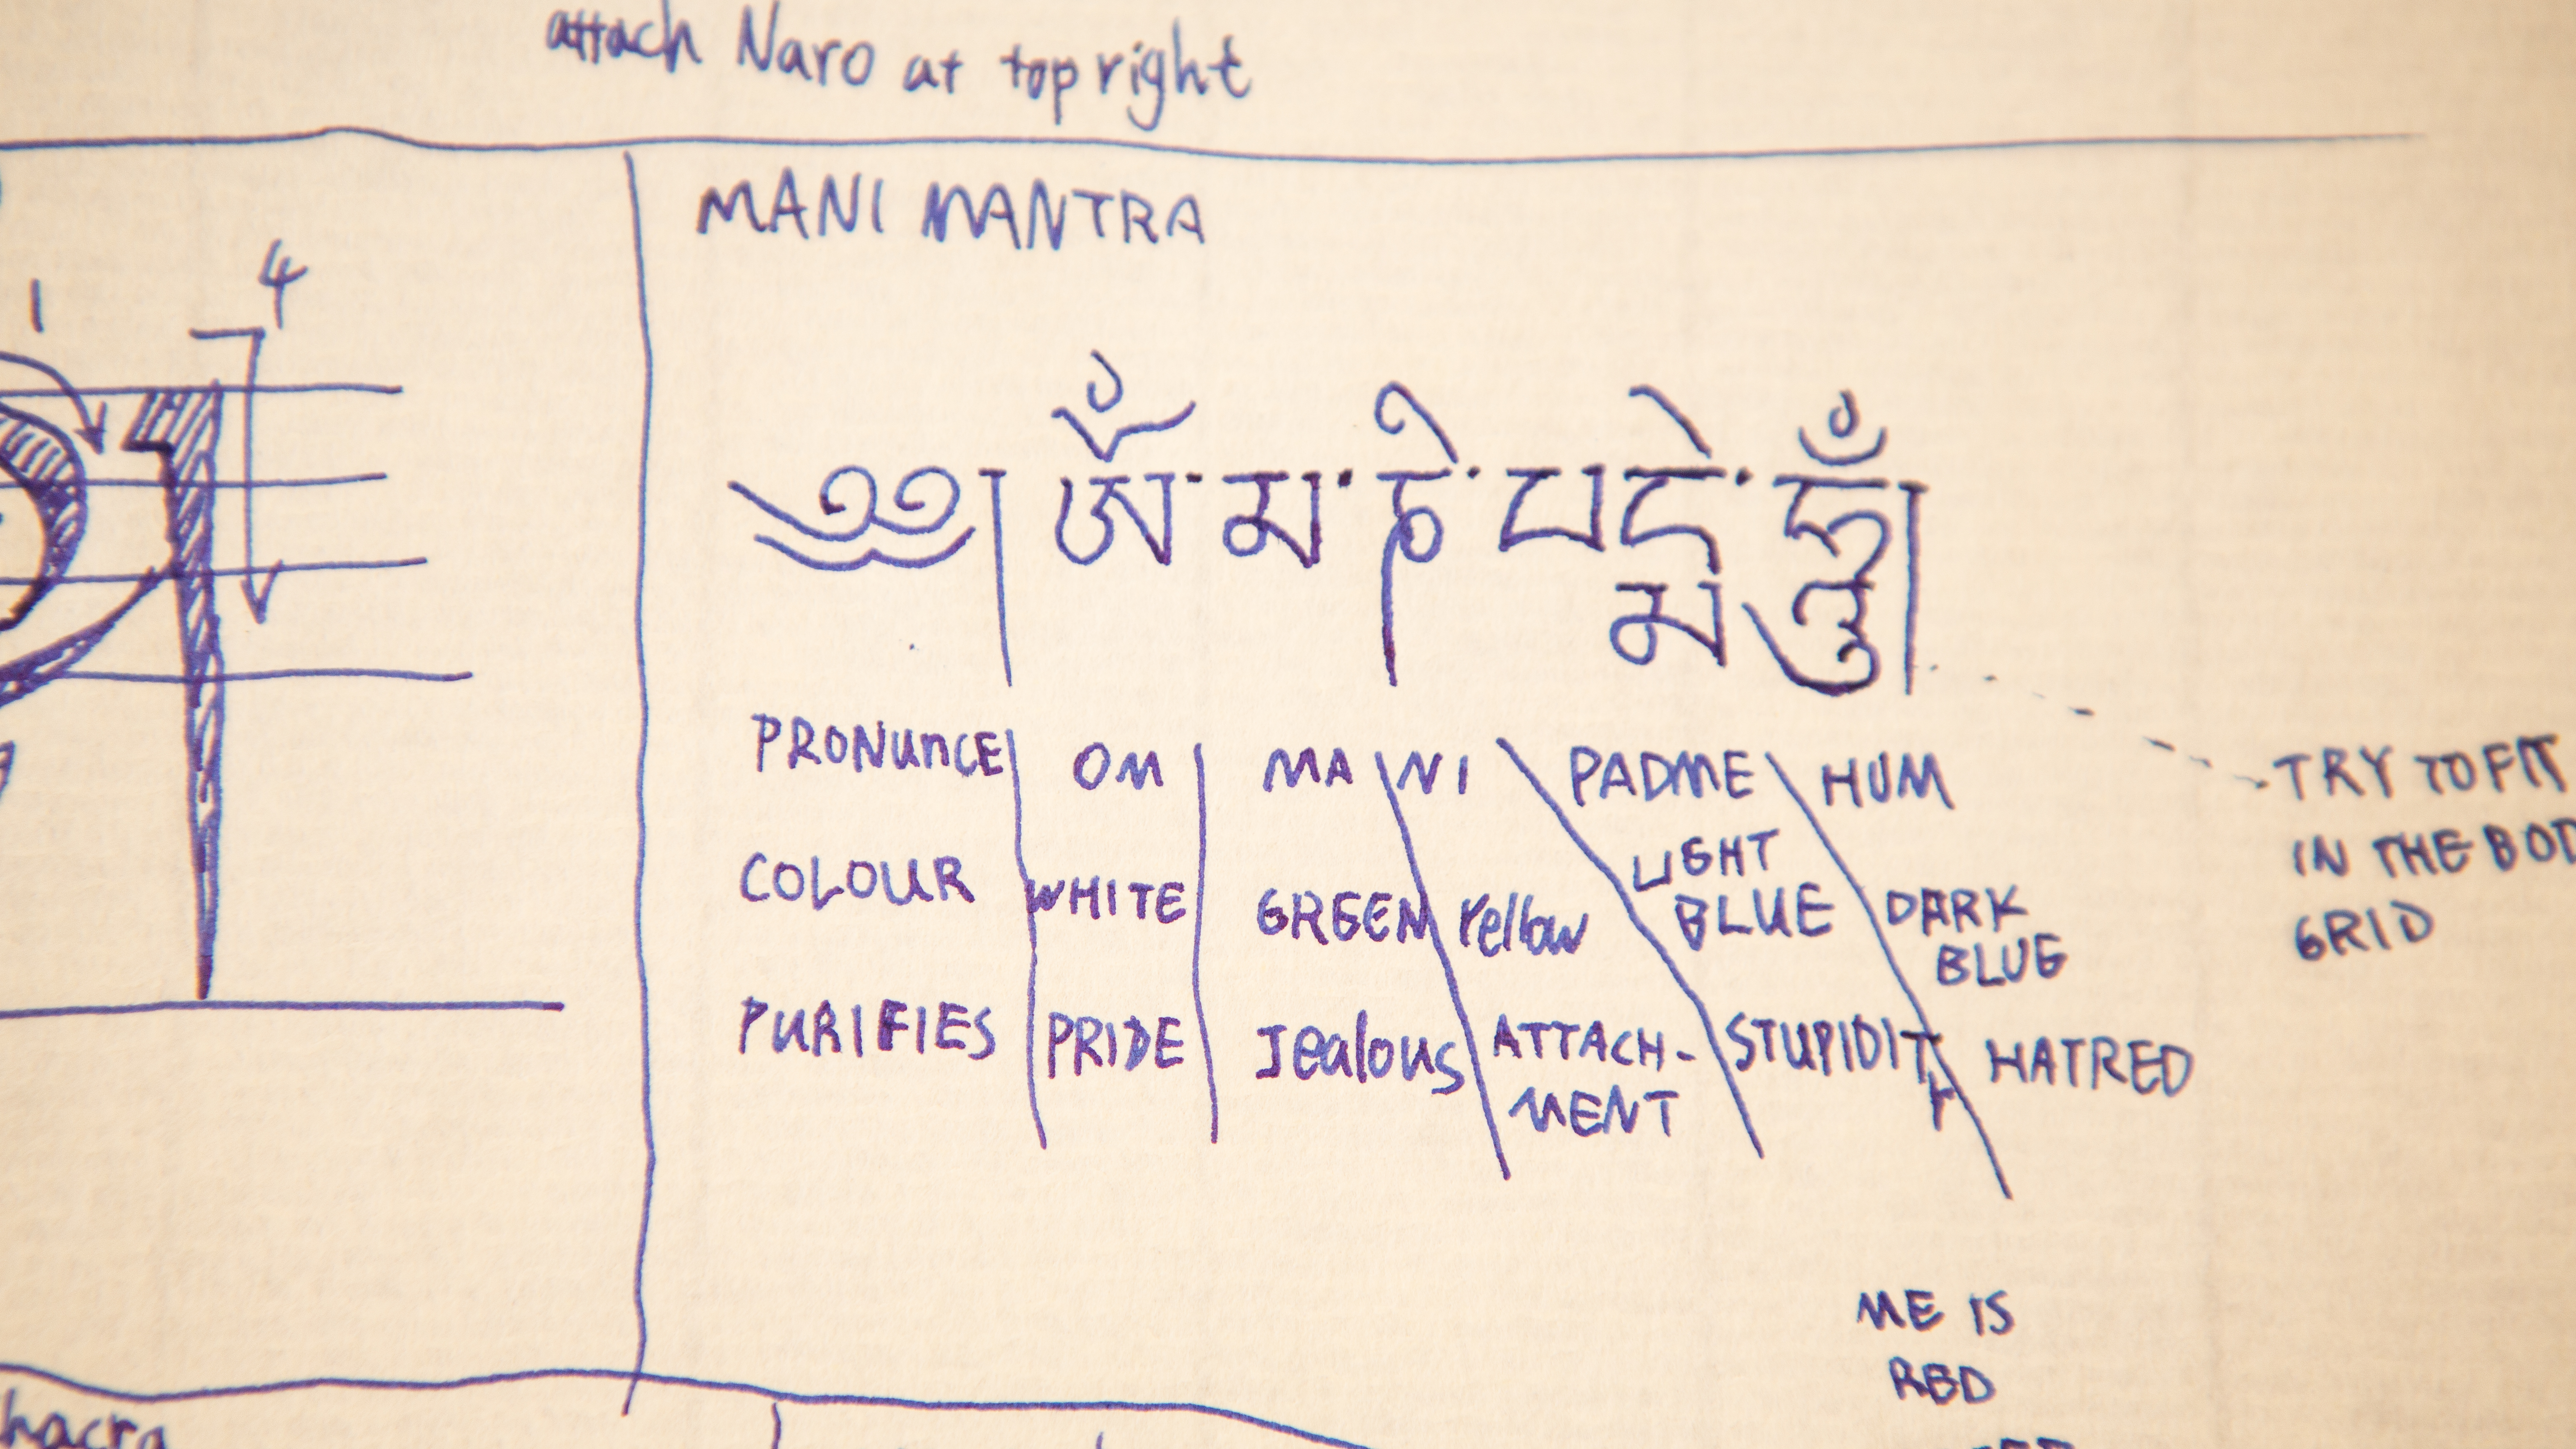 attach Naro at top right
MANI MANTRA
1 4
༄༅། ཨོཾ་མ་ཎི་པདྨེ་ཧཱུྃ།
PRONUnCE OM MA NI PADME HUM
COLOUR WHITE GREEN Yellow LIGHT BLUE DARK BLUE
PURIFIES PRIDE Jealous ATTACH-MENT STUPIDITY HATRED
TRY TO FIT
IN THE BOD
GRID
ME IS
RED
hacra